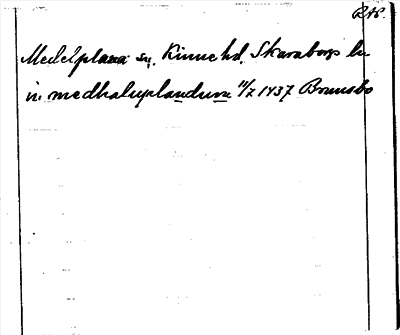 RAP.
Medelplana sn. Kinne hd. Skaraborgs ln
in medhaluplandum 11/7 1437 Brunsbo